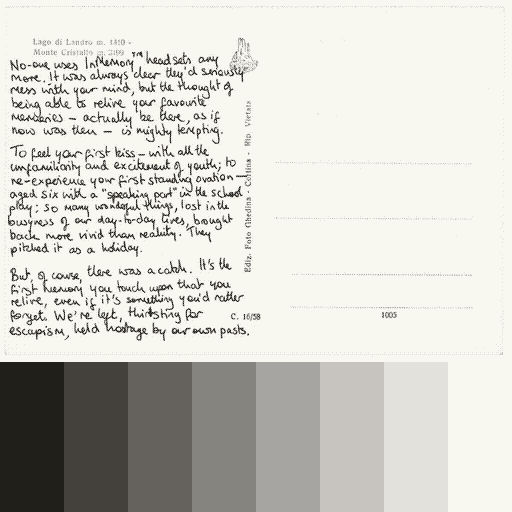 Lago di Landro m. 1410 -
Monte Cristallo m. 3199
No-one uses InMemory™ headsets any
more. It was always clear they'd seriously
mess with your mind, but the thought of
being able to relive your favourite
memories — actually be there, as if
now was then — is mighty tempting.
To feel your first kiss – with all the
unfamiliarity and excitement of youth; to
re-experience your first standing ovation —
aged six with a "speaking part" in the school
play; so many wonderful things, lost in the
busyness of our day-to-day lives, brought
back more vivid than reality. They
pitched it as a holiday.
But, of course, there was a catch. It's the
first memory you touch upon that you
relive, even if it's something you'd rather
forget. We're left, thirsting for
escapism, held hostage by our own pasts.
Ediz. Foto Ghedina - Cortina - Rip. Vietata
C. 16/58
1005